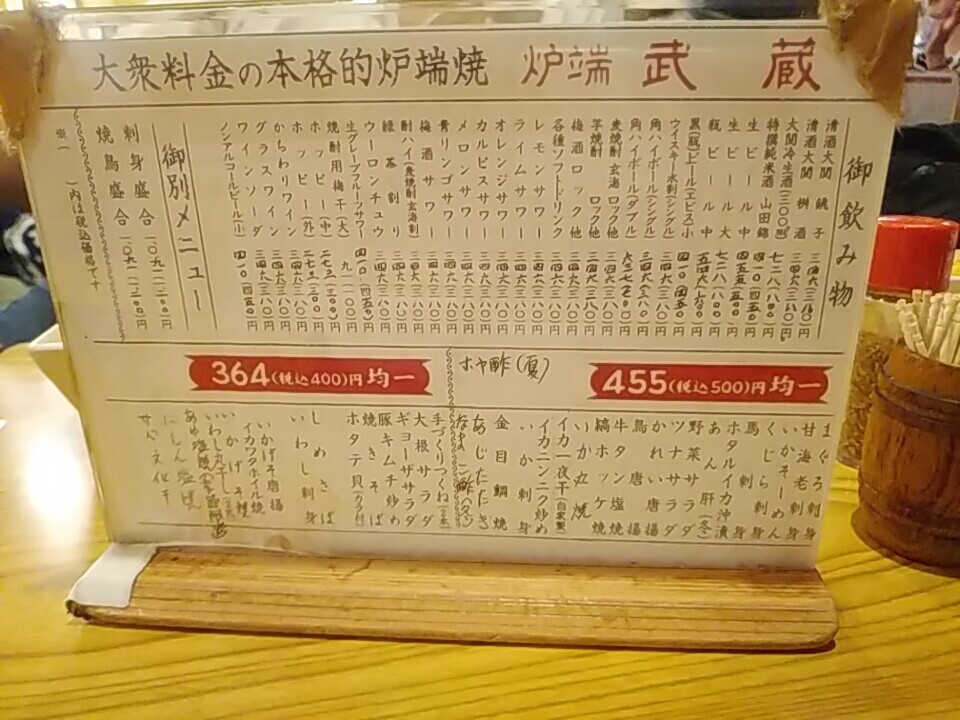 大衆料金の本格的炉端焼 炉端 武蔵
御飲み物
清酒大関 銚子 三四六(三八〇)円
清酒大関 桝酒 三四六(三八〇)円
大関冷生酒(三〇〇㎖) 七二八(八〇〇)円
特撰純米酒 山田錦 四一〇(四五〇)円
生ビール中 四五五(五〇〇)円
生ビール大 七二八(八〇〇)円
瓶ビール中
黒(瓶)ビール(エビス)小 四一〇(四五〇)円
ウイスキー水割(シングル) 三四六(三八〇)円
角ハイボール(シングル) 三四六(三八〇)円
角ハイボール(ダブル)
芋焼酎 ロック他 三四六(三八〇)円
麦焼酎 玄海 ロック他 三四六(三八〇)円
梅酒ロック他 三四六(三八〇)円
各種ソフトドリンク 三四六(三八〇)円
レモンサワー 三四六(三八〇)円
ライムサワー 三四六(三八〇)円
オレンジサワー 三四六(三八〇)円
カルピスサワー 三四六(三八〇)円
メロンサワー 三四六(三八〇)円
青リンゴサワー 三四六(三八〇)円
梅酒サワー 三四六(三八〇)円
酎ハイ(麦焼酎玄海割) 三四六(三八〇)円
緑茶割り 三四六(三八〇)円
ウーロンチュウ 三四六(三八〇)円
生グレープフルーツサワー 四一〇(四五〇)円
焼酎用梅干(大) 九一(一〇〇)円
ホッピー(中) 二七三(三〇〇)円
ホッピー(外) 二七三(三〇〇)円
かちわりワイン 三四六(三八〇)円
グラスワイン 三四六(三八〇)円
ワインソーダ 三四六(三八〇)円
ノンアルコールビール(小) 四一〇(四五〇)円
御別メニュー
刺身盛合 一〇九一(一二〇〇)円
焼鳥盛合 一〇九一(一二〇〇)円
※( )内は税込価格です
455(税込500)円均一
まぐろ刺身
甘海老刺身
いかそーめん
くじら刺身
馬刺
ホタルイカ沖漬
あん肝(冬)
野菜サラダ
ツナサラダ
かれい唐揚
鳥唐揚
牛タン塩焼
縞ホッケ焼
いか丸焼
イカ一夜干(自家製)
イカニンニク炒め
いか刺
金目鯛焼
あじたたき
ホヤ酢(夏)
364(税込400)円均一
手づくりつくね(2本)
大根サラダ
ギョーザサラダ
豚キムチ炒め
焼きそば
ホタテ貝(カラ付)
しめさば
いわし刺身
いかげそ唐揚
イカワタホイル焼
いかげそ焼
いわし丸干し
にしん塩焼